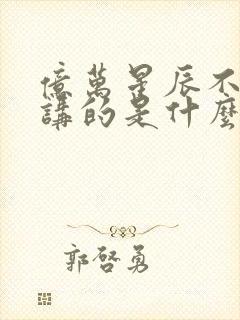 億萬星辰不
講的是什麼
郭啓勇